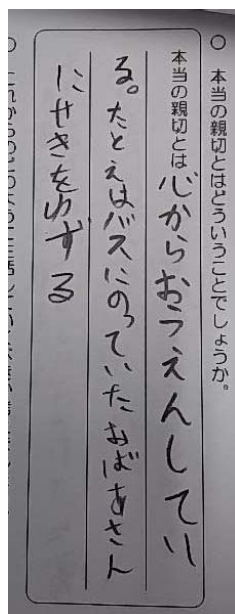 ○ 本当の親切とはどういうことでしょうか。
本当の親切とは心からおうえんしてい
る。たとえばバスにのっていたおばあさん
にせきをゆずる